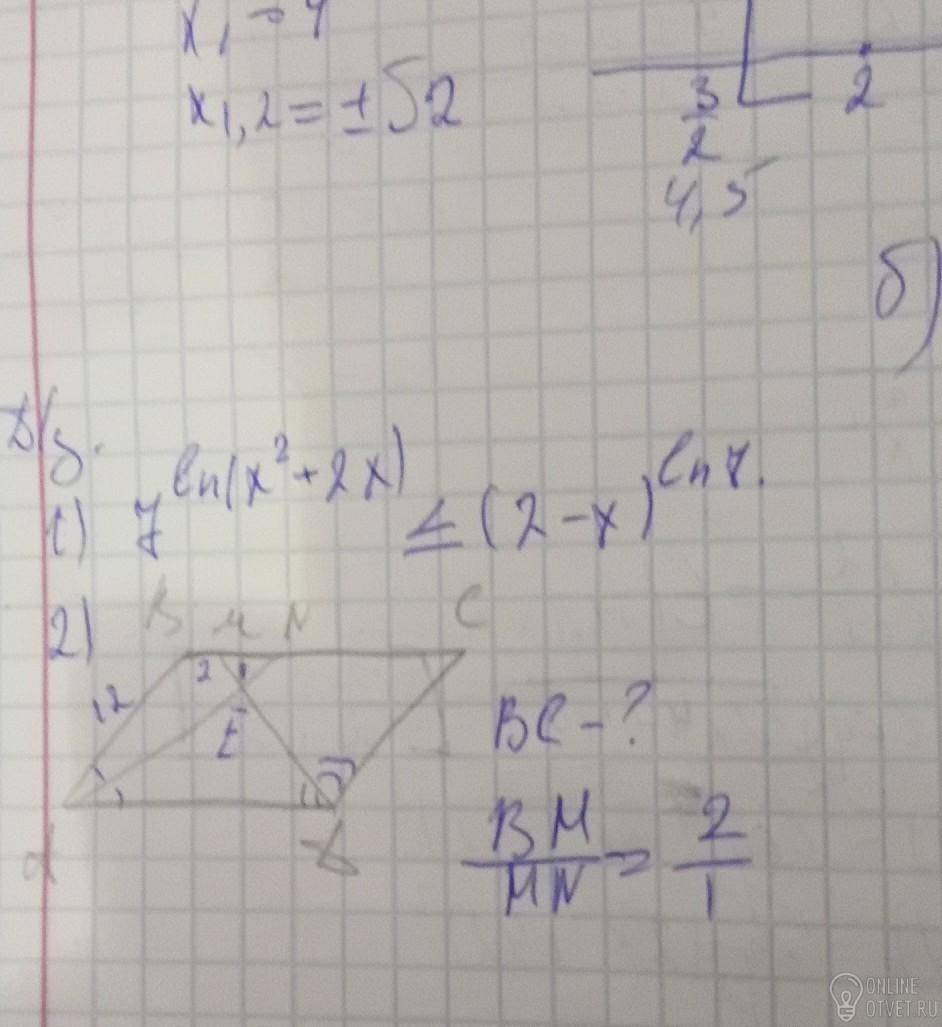 x₁ = 4
x₁,₂ = ±√2
3/2
2
4,5
б)
Д/з.
1) 7^ln(x²+2x) ≤ (2-x)^ln7.
2) B M N C
12 2 1
E
A D
BC-?
BM/MN = 2/1
ONLINE
OTVET.RU